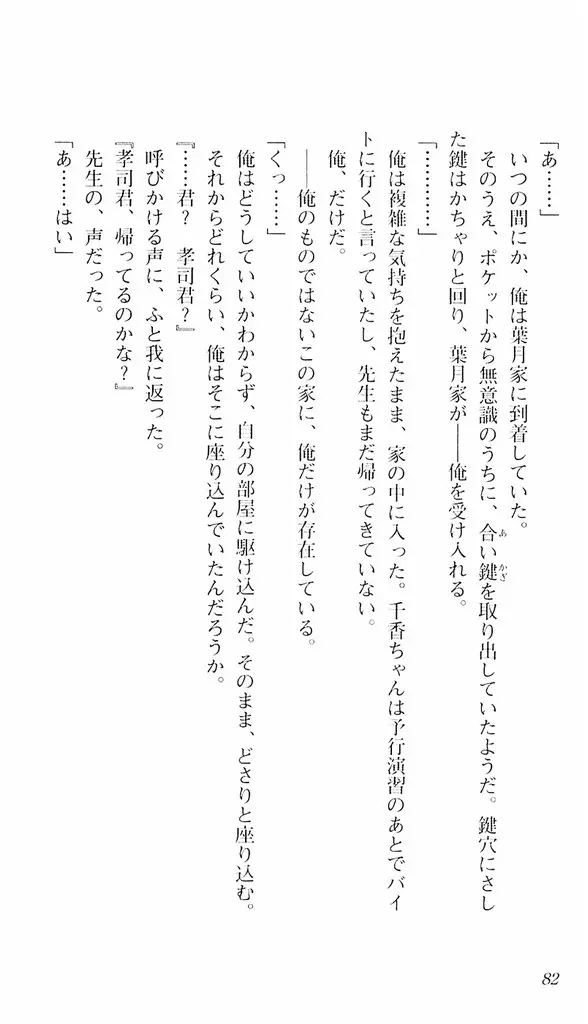 「あ……」
いつの間にか、俺は葉月家に到着していた。
そのうえ、ポケットから無意識のうちに、合い鍵を取り出していたようだ。鍵穴にさし
た鍵はかちゃりと回り、葉月家が――俺を受け入れる。
「…………」
俺は複雑な気持ちを抱えたまま、家の中に入った。千香ちゃんは予行演習のあとでバイ
トに行くと言っていたし、先生もまだ帰ってきていない。
俺、だけだ。
――俺のものではないこの家に、俺だけが存在している。
「くっ……」
俺はどうしていいかわからず、自分の部屋に駆け込んだ。そのまま、どさりと座り込む。
それからどれくらい、俺はそこに座り込んでいたんだろうか。
『……君？　孝司君？』
呼びかける声に、ふと我に返った。
『孝司君、帰ってるのかな？』
先生の、声だった。
「あ……はい」
82